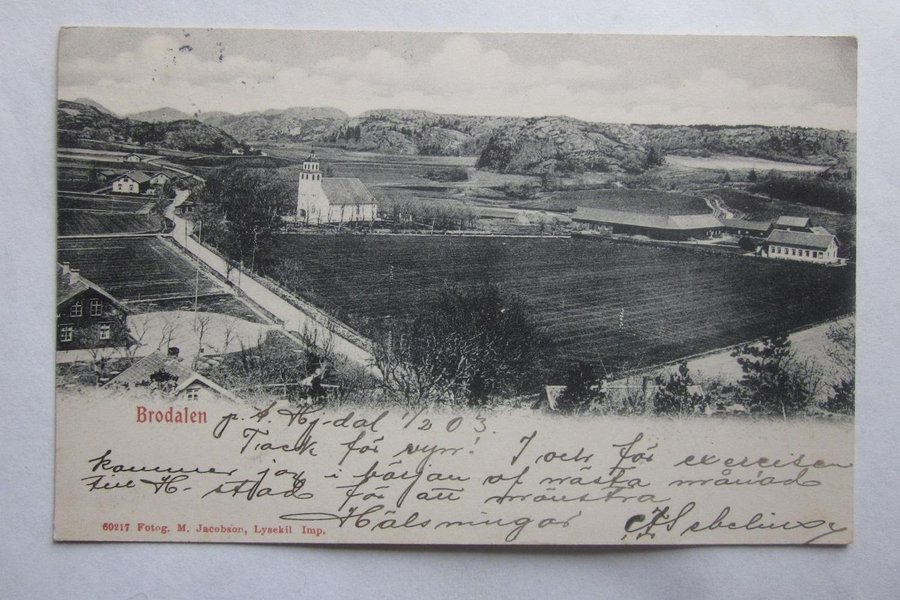 Brodalen
Hj-dal 1/2 03.
Tack för vyn! I och för exercisen
kommer jag i början af nästa månad
till H-stad för att mönstra
Hälsningar Sebelius
60217 Fotog. M. Jacobson, Lysekil Imp.